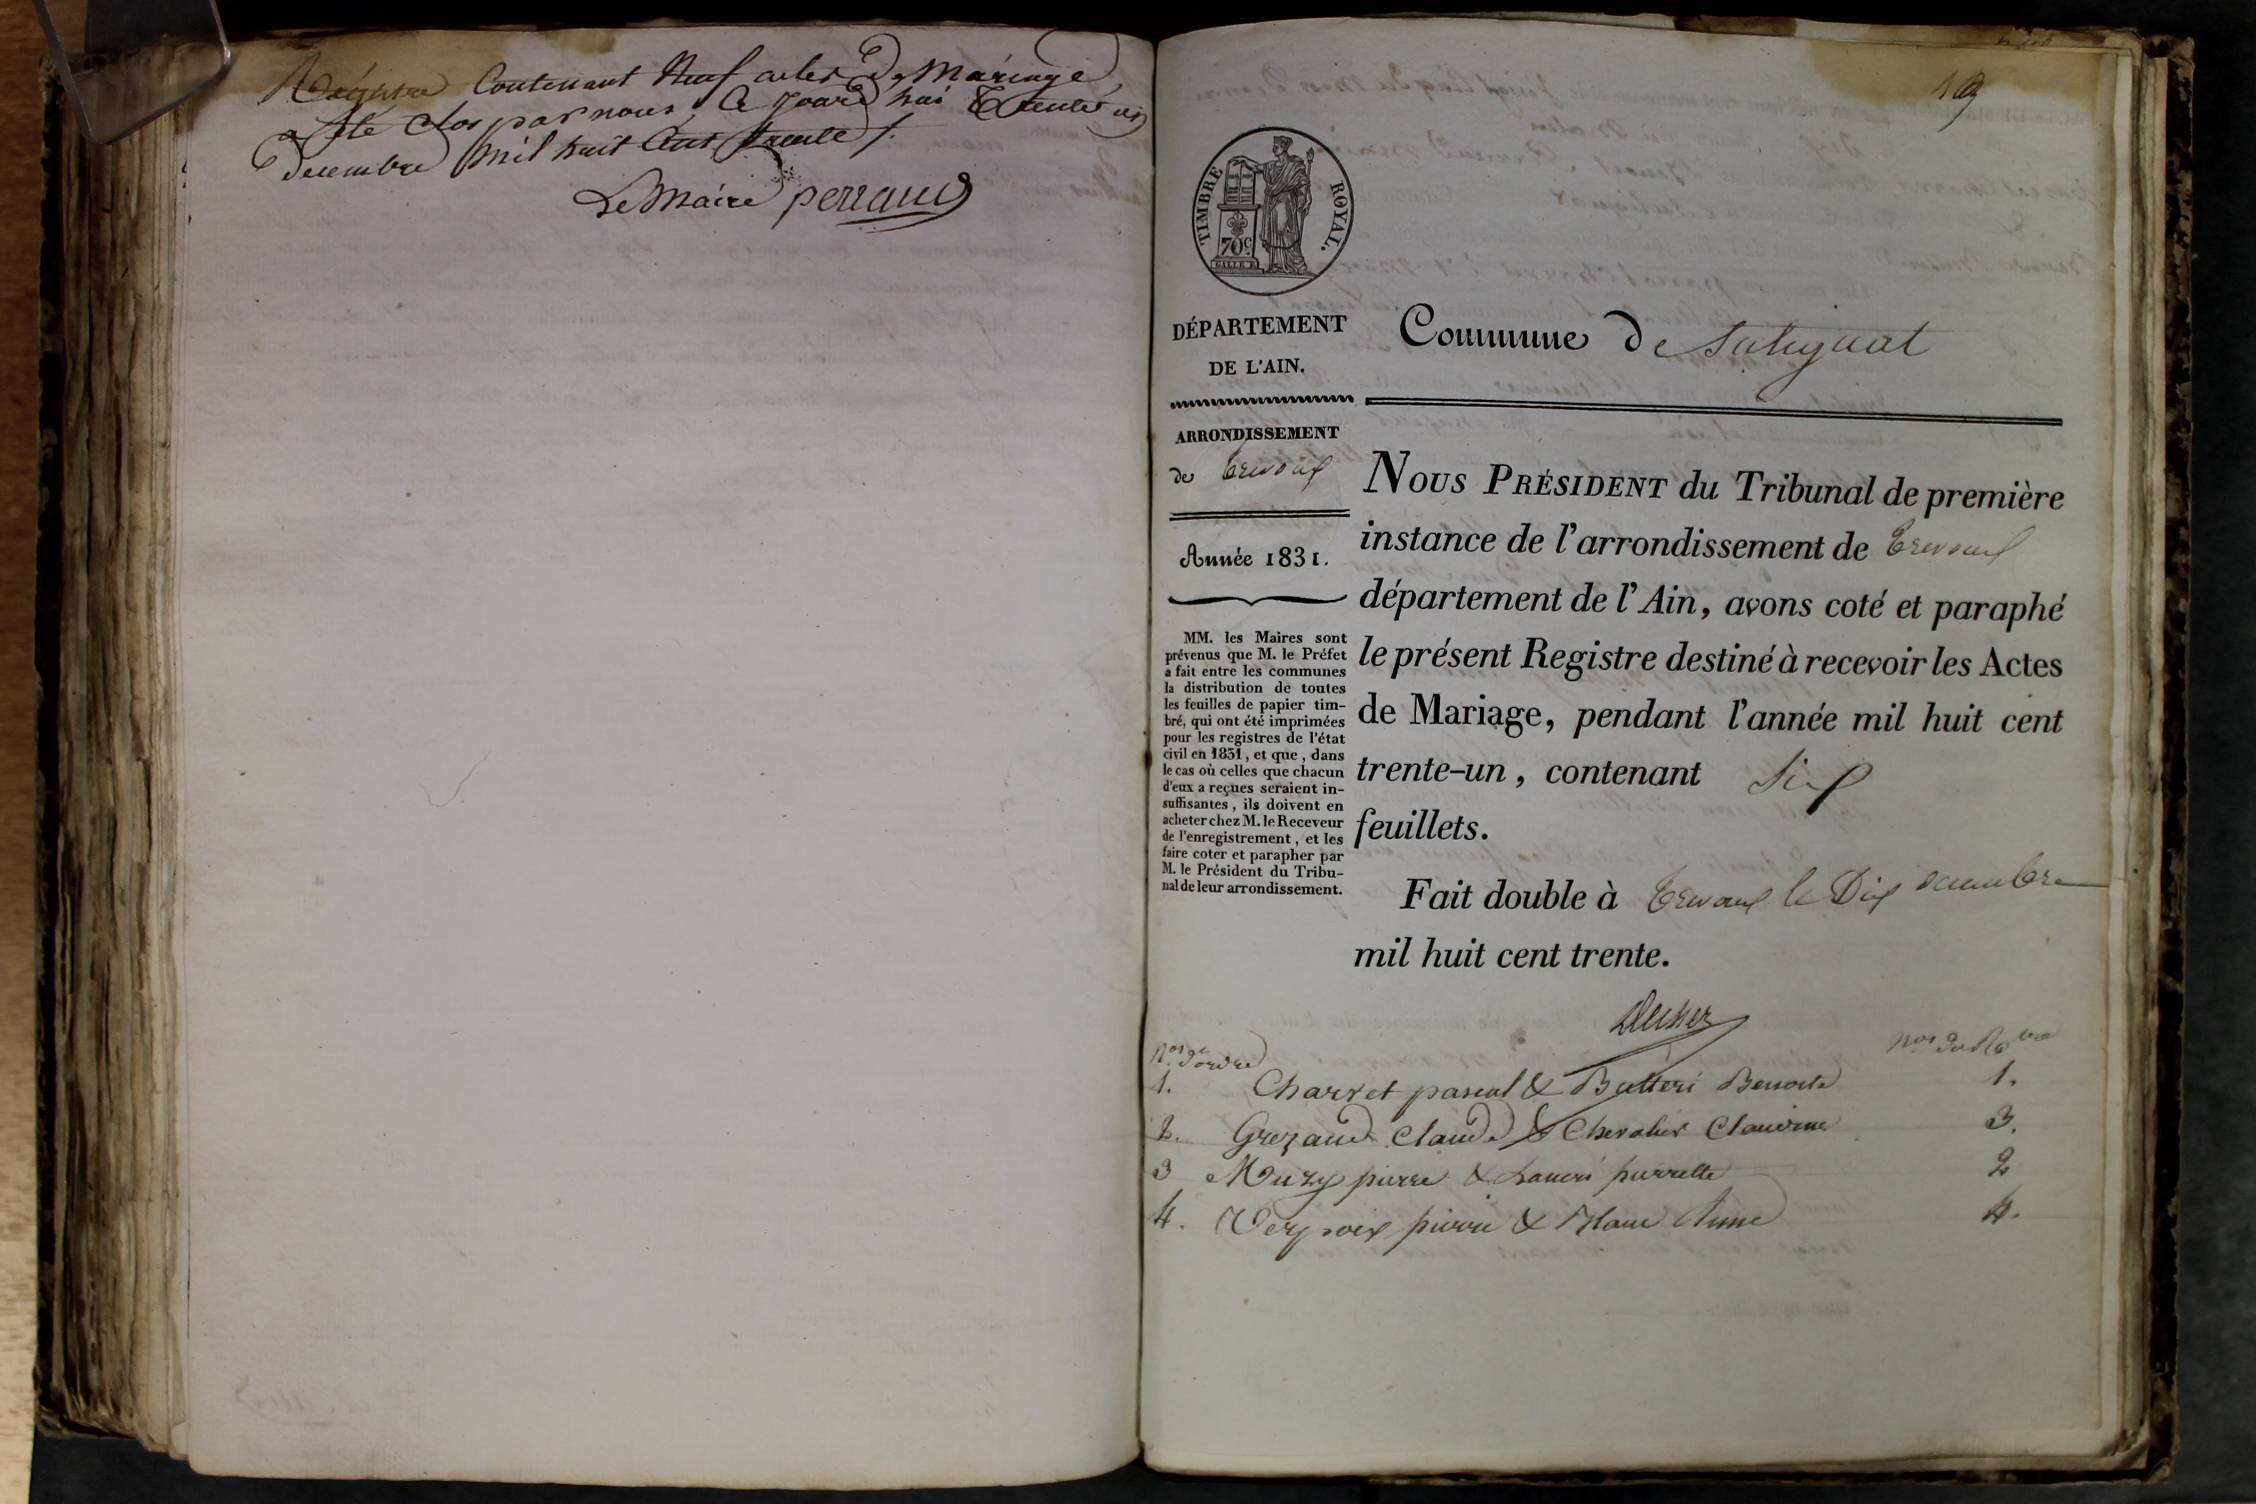 Régistre Contenant Neuf actes de Mariage
a été clos par nous, Ce jourd'hui Trente un
decembre mil huit Cent trente /.
Le Maire perraud
TIMBRE ROYAL.
70c
DÉPARTEMENT
DE L'AIN.
ARRONDISSEMENT
de Trevoux
Année 1831.
MM. les Maires sont
prévenus que M. le Préfet
a fait entre les communes
la distribution de toutes
les feuilles de papier tim-
bré, qui ont été imprimées
pour les registres de l'état
civil en 1831, et que, dans
le cas où celles que chacun
d'eux a reçues seraient in-
suffisantes, ils doivent en
acheter chez M. le Receveur
de l'enregistrement, et les
faire coter et parapher par
M. le Président du Tribu-
nal de leur arrondissement.
Commune de Sulignat
NOUS PRÉSIDENT du Tribunal de première
instance de l'arrondissement de Trevoux
département de l'Ain, avons coté et paraphé
le présent Registre destiné à recevoir les Actes
de Mariage, pendant l'année mil huit cent
trente-un, contenant Six
feuillets.
Fait double à Trevoux le Dix decembre
mil huit cent trente.
Nos d'ordre Nos du Rtre
1. Charvet pascal & Butteri Benoite 1.
2. Grezaud Claude & Chevalier Claudine 3.
3 Muzy pierre & pierrette 2
4. pierre & Anne 4.